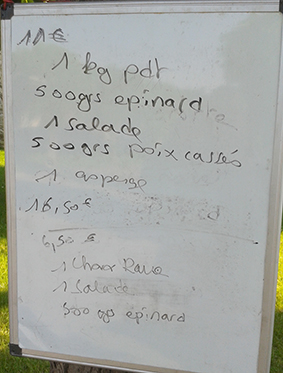 11€
1 kg pdt
500grs epinard
1 salade
500grs poix cassés
1 asperge
16,50€
6,50 €
1 Choux Rave
1 Salade
500 grs epinard